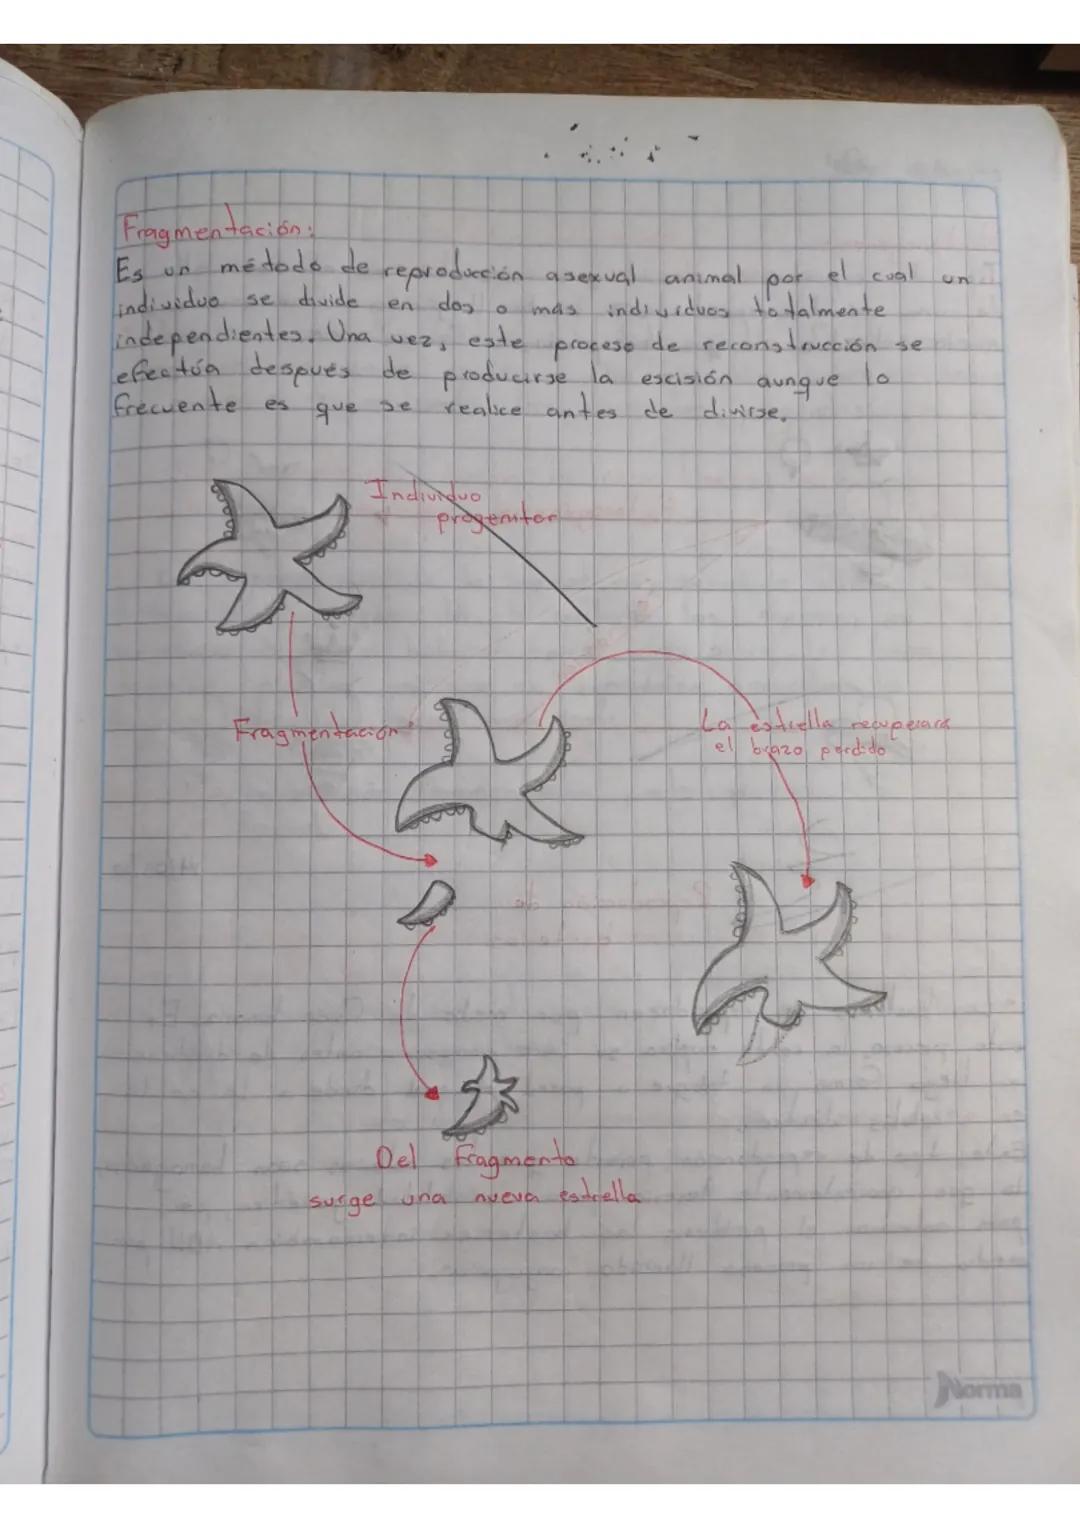 Fragmentación:
Es un método de reproducción asexual animal por el cual un
individuo se divide en dos o más individuos totalmente
independientes. Una vez, este proceso de reconstrucción se
efectúa después de producirse la escisión aunque lo
frecuente es que se realice antes de divirse.
Individuo
progenitor
Fragmentación
La estrella recuperará
el brazo perdido
Del fragmento
surge una nueva estrella
Norma